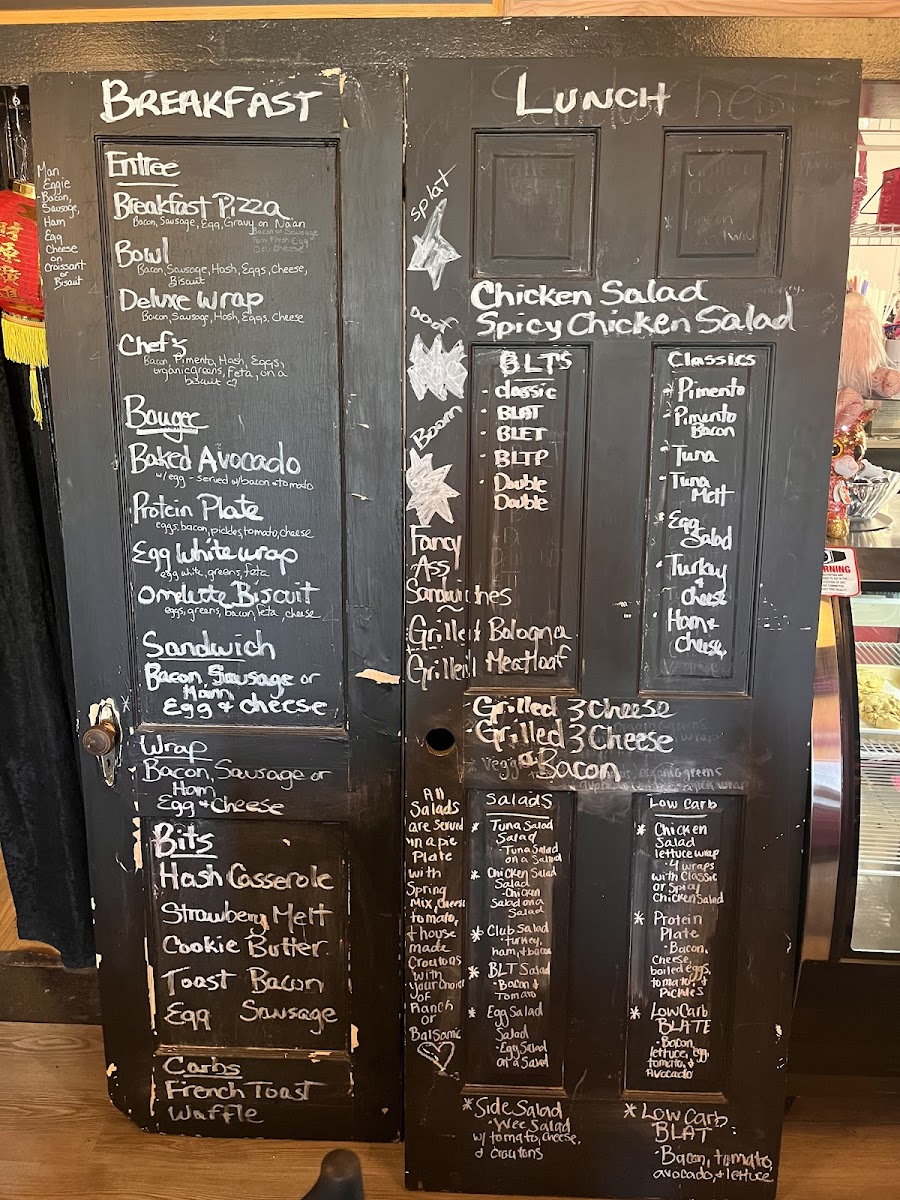 BREAKFAST
Man
Eggie
- Bacon,
Sausage,
Ham
Egg
Cheese
on
Croissant
or
Bisaut
Entree
Breakfast Pizza
Bacon, Sausage, Egg, Gravy on Naan
Bacon or Sausage
Farm Fresh Egg
Deli Cheese
Bowl
Bacon, Sausage, Hash, Eggs, Cheese,
Biscuit
Deluxe Wrap
Bacon, Sausage, Hash, Eggs, Cheese
Chef's
Bacon, Pimento, Hash, Eggs,
organic greens, Feta, on a
biscuit <3
Bougee
Baked Avocado
w/egg - served w/bacon + tomato
Protein Plate
eggs, bacon, pickles, tomato, cheese
Egg White wrap
egg white, greens, feta
Omelette Biscuit
eggs, greens, bacon, feta, cheese
Sandwich
Bacon, Sausage or
Hamm
Egg + cheese
Wrap
Bacon, Sausage or
Ham
Egg + Cheese
Bits
Hash Casserole
Strawberry Melt
Cookie Butter
Toast Bacon
Egg Sausage
Carbs
French Toast
Waffle
LUNCH
splat
Chicken Salad
Spicy Chicken Salad
Doof
Boom
BLTS
- classic
- BLAT
- BLET
- BLTP
- Double
Double
Classics
• Pimento
• Pimento
Bacon
• Tuna
• Tuna
Melt
• Egg
Salad
• Turkey
+
Cheese
• Ham +
Cheese
Fancy
Ass
Sandwiches
Grilled Bologna
Grilled Meatloaf
Grilled 3 Cheese
• Grilled 3 Cheese
+ Bacon
All
Salads
are served
in a pie
Plate
with
Spring
Mix, Cheese
tomato,
+ house
made
Croutons
with
your choice
of
Ranch
or
Balsamic
Salads
* Tuna Salad
Salad
• Tuna Salad
on a Salad
* Chicken Salad
Salad
- Chicken
Salad on a
Salad
* Club Salad
• turkey,
ham, + bacon
* BLT Salad
• Bacon +
Tomato
* Egg Salad
Salad
- Egg Salad
on a Salad
* Side Salad
• Wee Salad
w/ tomato, cheese,
& croutons
Low Carb
* Chicken
Salad
lettuce wrap
• 4 wraps
with Classic
or Spicy
Chicken Salad
* Protein
Plate
• Bacon,
Cheese,
boiled eggs,
tomato, +
Pickles
* Low Carb
BLATE
• Bacon,
lettuce, egg,
tomato, +
Avocado
* Low Carb
BLAT
• Bacon, tomato,
avocado, + lettuce